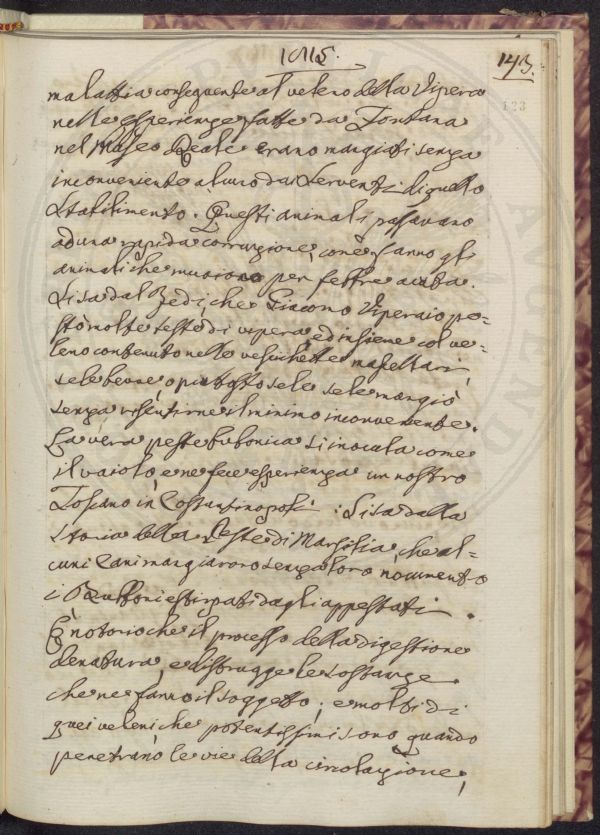 1015.
143.
123
malattia conseguente al veleno della Vipera
nelle esperienze fatte da Fontana
nel Museo Reale erano mangiati senza
inconveniente alcuno dai serventi di quello
Stabilimento. Questi animali passavano
ad una rapida corruzione, come fanno gli
animali che muoiono per febbre acuta.
Si sa dal Redi, che Giacomo Viperaio pe=
stò molte teste di vipera, ed insieme col ve=
leno contenuto nelle vesichette mascellari,
se le bevve, o piuttosto se le mangiò
senza risentirne il minimo inconveniente.
La vera peste bubonica si inocula come
il vaiolo, e ne fece esperienza un nostro
Toscano in Costantinopoli. Si sa dalla
Storia della Peste di Marsilia, che al=
cuni Cani mangiarono senza loro nocumento
i Bubboni estirpati dagli appestati.
È notorio che il processo della digestione
denatura, e distrugge le sostanze
che ne fanno il soggetto; e molti di
quei veleni che potentissimi sono quando
penetrano le vie della circolazione,